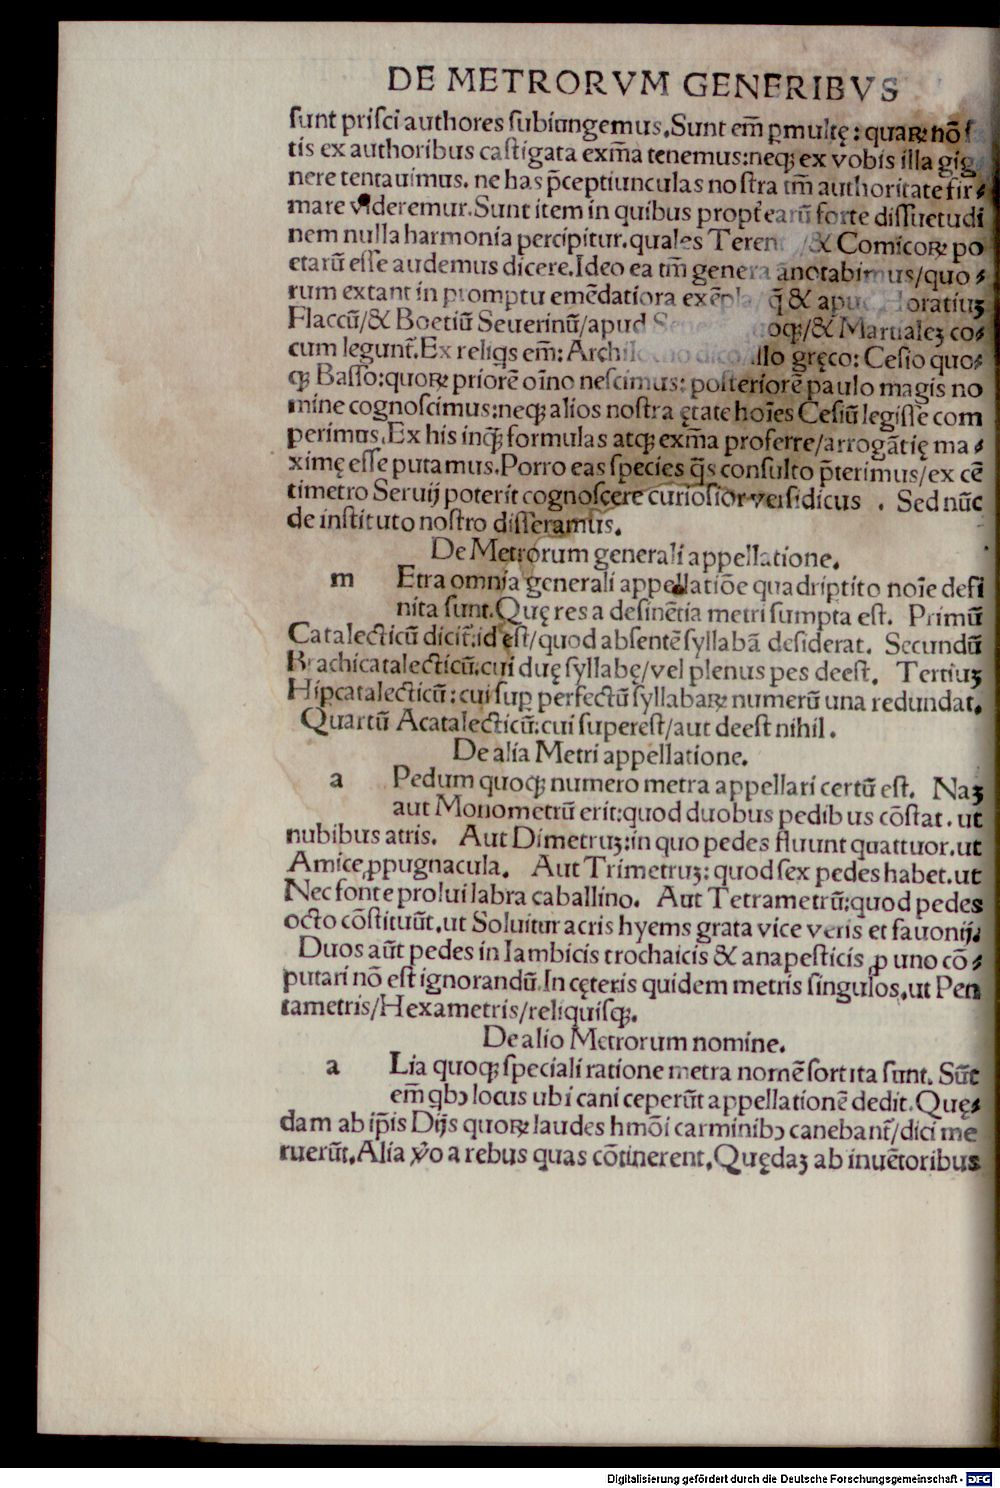 DE METRORVM GENERIBVS
sunt prisci authores subiungemus. Sunt em̄ ꝑmultę: quaꝝ nō s
tis ex authoribus castigata exm̄a tenemus: neqꝫ ex vobis illa gig
nere tentauimus. ne has p̄ceptiunculas nostra tm̄ authoritate fir⸗
mare videremur. Sunt item in quibus propt̉ earū forte dissuetudi
nem nulla harmonia percipitur. quales Teren /& Comicoꝝ po
etarū esse audemus dicere. Ideo ea tm̄ genera ānotabimus/quo⸗
rum extant in promptu emēdatiora exēpla/ q̄ & apud Horatiuꝫ
Flaccū/& Boetiū Seuerinū/apud oqꝫ/& Martialeꝫ co⸗
cum legunt̉. Ex reliqs em̄: Archilocho dico illo gręco: Cesio quo⸗
qꝫ Basso: quoꝝ priorē oīno nescimus: posteriorē paulo magis no
mine cognoscimus: neqꝫ alios nostra ętate hoīes Cesiū legisse com
perimus. Ex his inqꝫ formulas atqꝫ exm̄a proferre/arrogātię ma⸗
ximę esse putamus. Porro eas species q̄s consulto p̄terimus/ex cē
timetro Seruij poterit cognoscere curiosior versidicus . Sed nūc
de instituto nostro disseramus.
De Metrorum generali appellatione.
m Etra omnia generali appellatiōe quadriptito noīe defi
nita sunt. Quę res a desinētia metri sumpta est. Primū
Catalecticū dicit̉: id est/quod absentē syllabā desiderat. Secundū
Brachicatalecticū: cui duę syllabę/vel plenus pes deest. Tertiuꝫ
Hiꝑcatalecticū: cui suꝑ perfectū syllabaꝝ numerū una redundat.
Quartū Acatalecticū: cui superest/aut deest nihil.
De alia Metri appellatione.
a Pedum quoqꝫ numero metra appellari certū est. Naꝫ
aut Monometrū erit: quod duobus pedibus cōstat. ut
nubibus atris. Aut Dimetruꝫ: in quo pedes fluunt quattuor. ut
Amice ꝓpugnacula. Aut Trimetruꝫ: quod sex pedes habet. ut
Nec fonte prolui labra caballino. Aut Tetrametrū: quod pedes
octo cōstituūt. ut Soluitur acris hyems grata vice veris et fauonij.
Duos aūt pedes in Iambicis trochaicis & anapesticis ꝓ uno cō⸗
putari nō est ignorandū. In cęteris quidem metris singulos. ut Pen
tametris/Hexametris/reliquisqꝫ.
De alio Metrorum nomine.
a Lia quoqꝫ speciali ratione metra nomē sortita sunt. Sūt
em̄ qbꝯ locus ubi cani ceperūt appellationē dedit. Quę⸗
dam ab ip̄is Dijs quoꝝ laudes hmōi carminibꝯ canebant̉/dici me
ruerūt. Alia ꝟo a rebus quas cōtinerent. Quędaꝫ ab inuētoribus
Digitalisierung gefördert durch die Deutsche Forschungsgemeinschaft - DFG